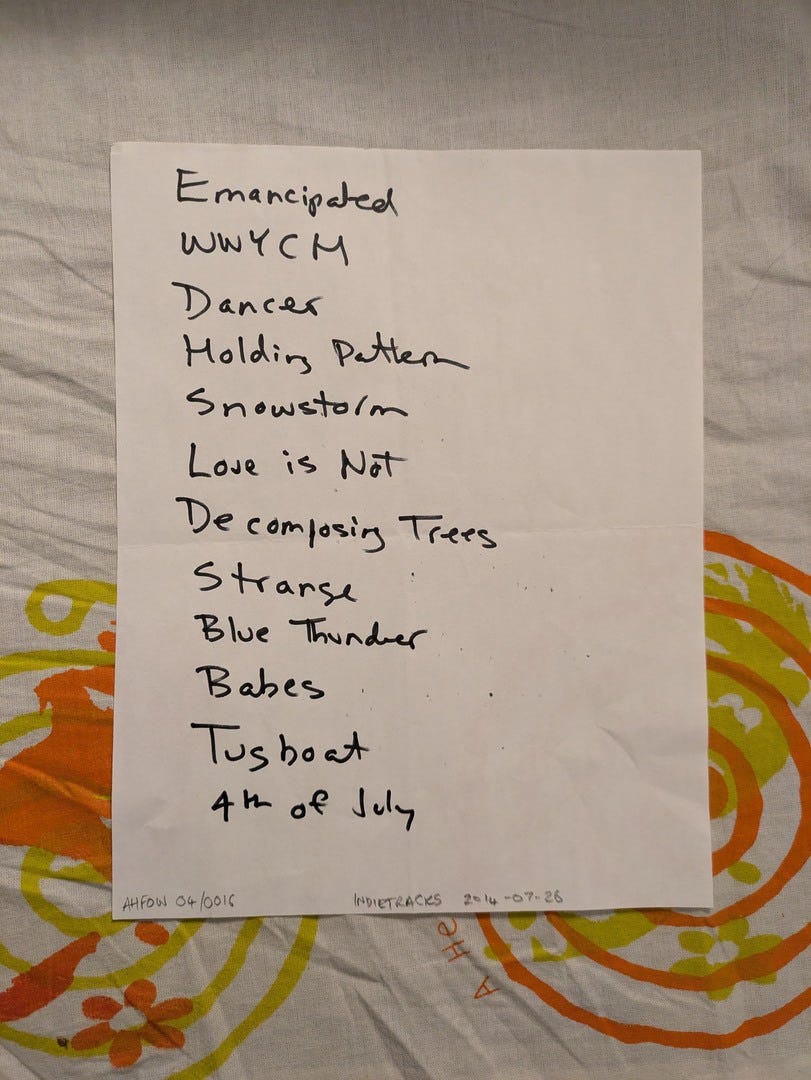 Emancipated
WWYCM
Dancer
Holding Pattern
Snowstorm
Love is Not
Decomposing Trees
Strange
Blue Thunder
Babes
Tugboat
4th of July
AHFOW 04/0016 INDIETRACKS 2014-07-26
A He